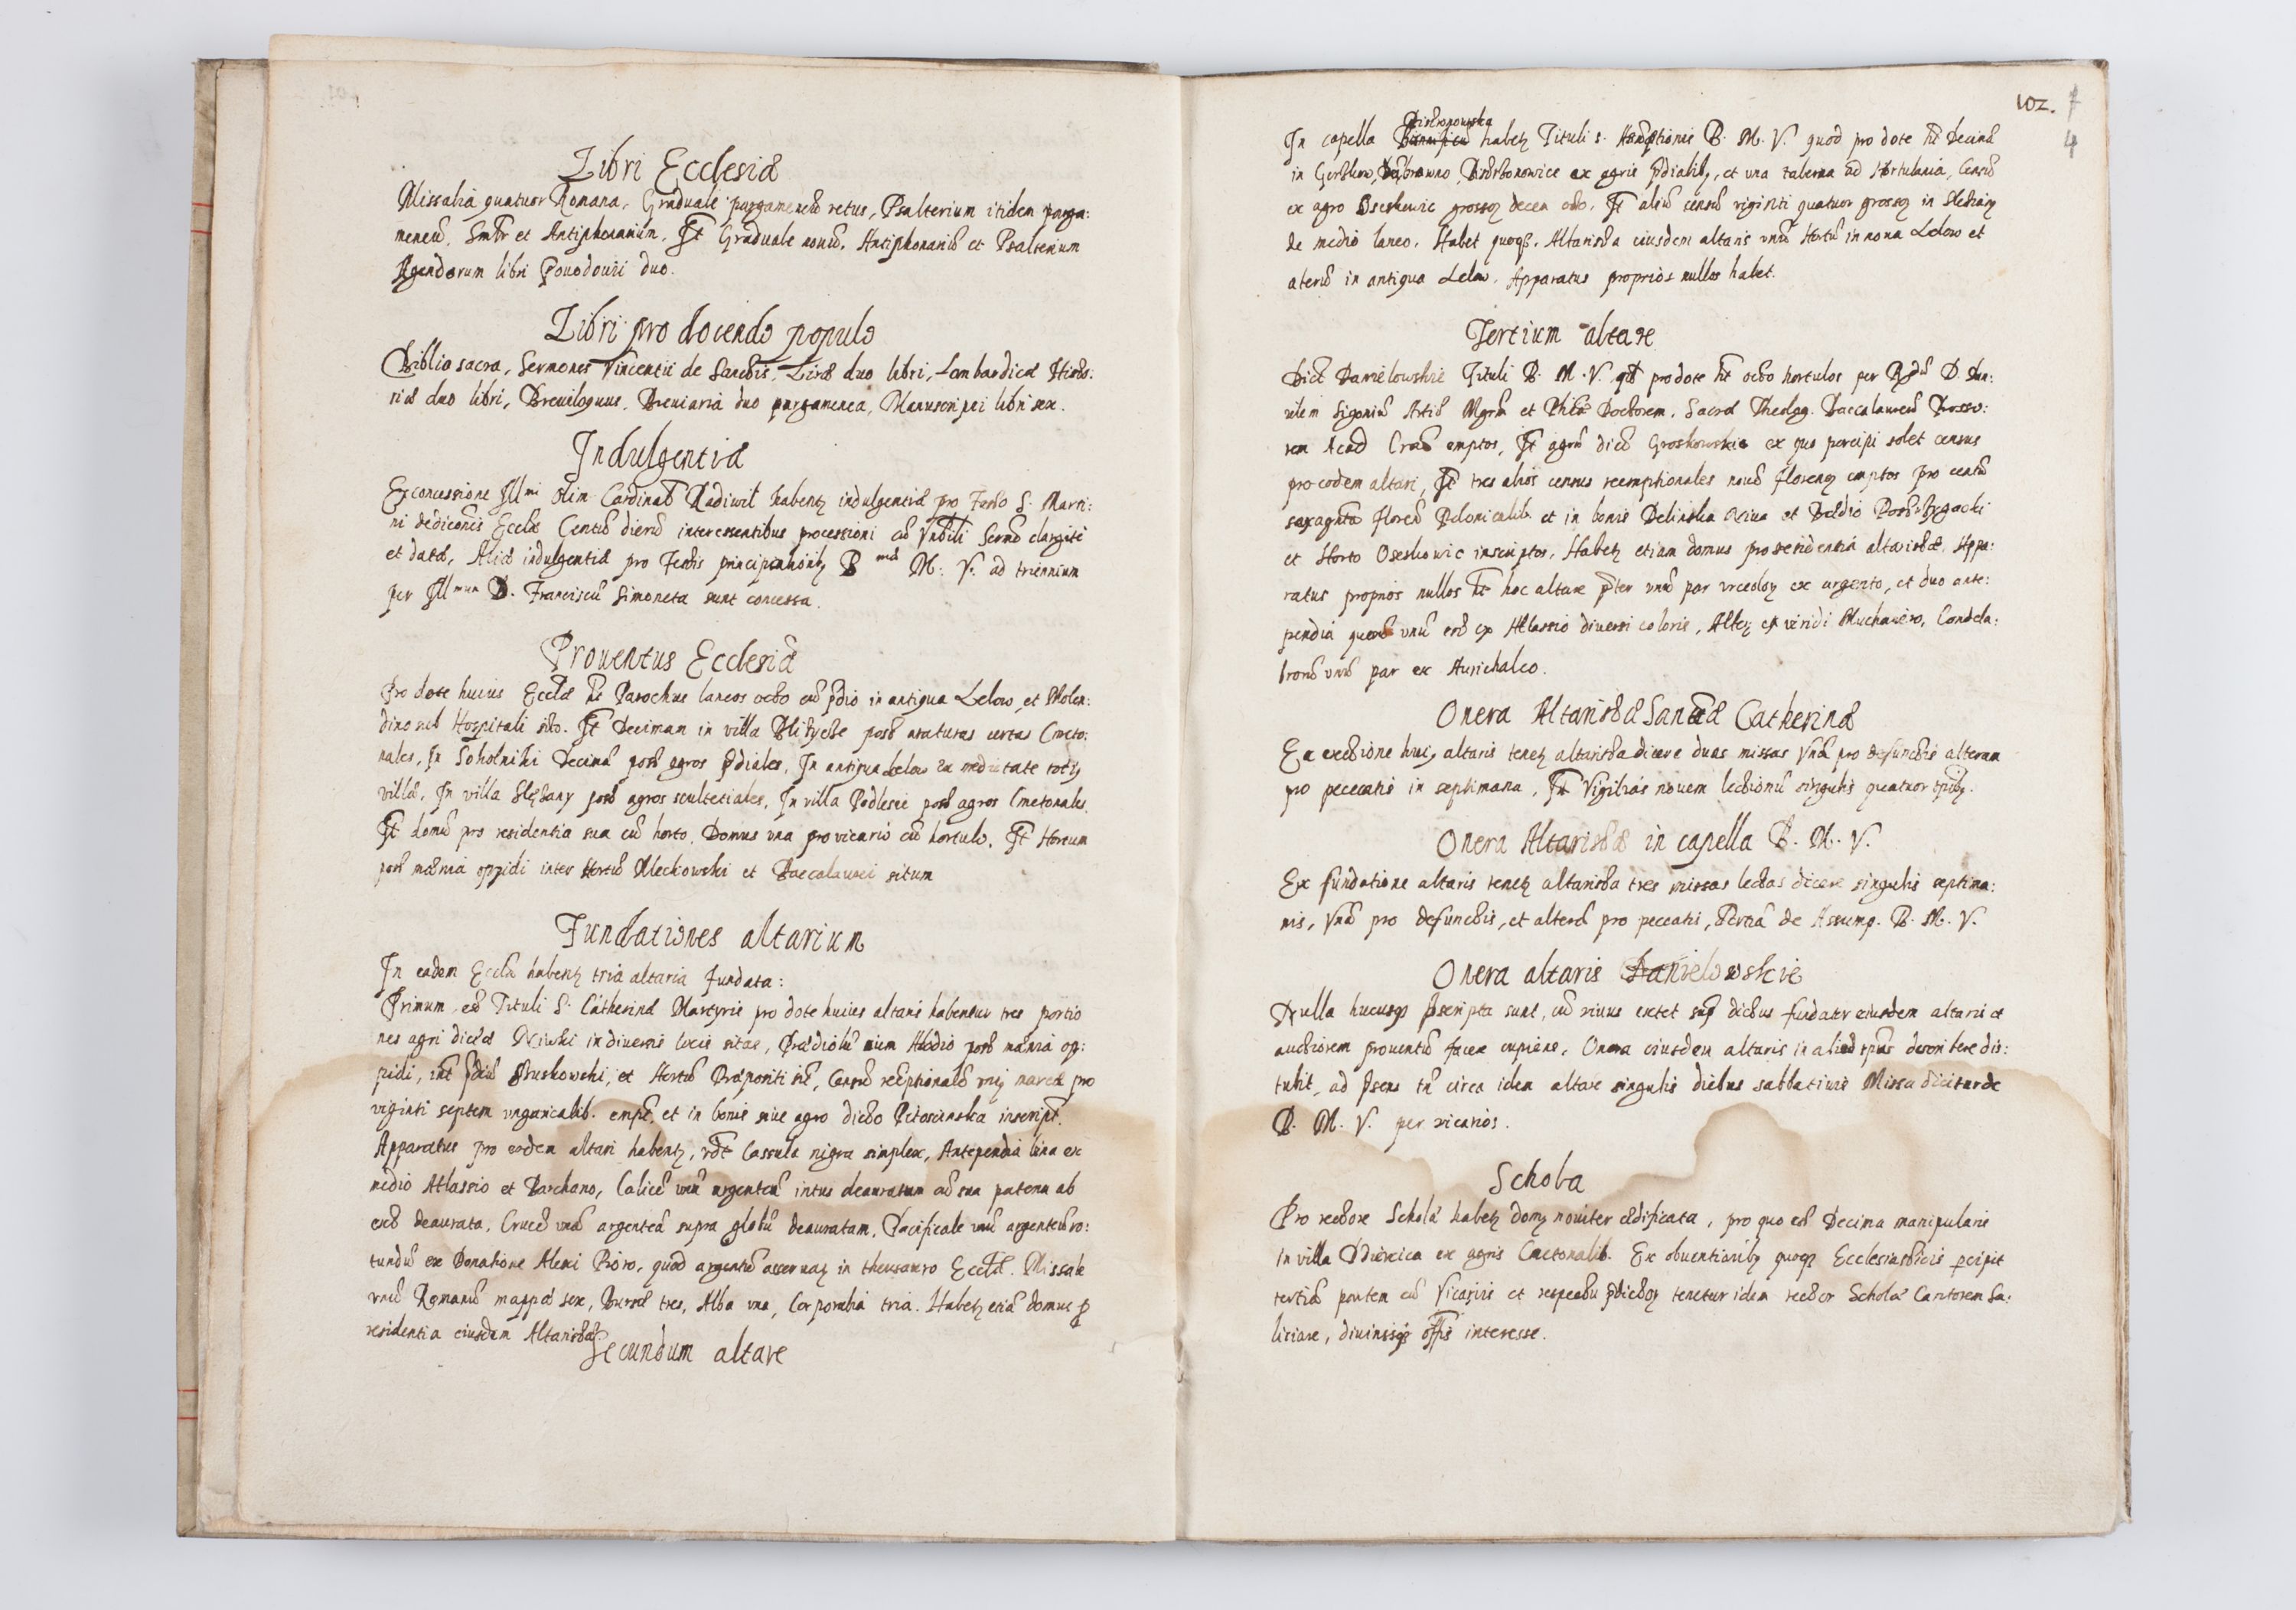 Libri Ecclesiæ
Missalia quatuor Romana, Graduale pargameneũ vetus, Psalterium itidem parga:
meneũ, et Antiphonarium. It Graduale nouũ, Antiphonariũ et Psalterium
Agendorum libri duo.
Libri pro docendo populo
Biblio sacra, Sermones Vincentii de Sanctis, Liræ duo libri, Lombardicæ Histo:
riæ duo libri, Breuiloquus, Breuiaria duo pargamenea, Manuscripti libri sex.
Indulgentiæ
Ex concessione Illmi olim Cardinal Radiwil habentꝫ indulgentiæ pro Festo S. Marti:
ni dedicõnis Ecclæ Centũ dierũ interessentibus processioni
et datæ, Aliæ indulgentiæ pro Festis principalioribꝫ B mæ M: V. ad triennium
per Illmum D. Franciscũ Simoneta sunt concessa.
Prouentus Ecclesiæ
Pro dote huius Eccłæ ht Parochus laneos octo cũ pdio in antiqua Lelow, et Molen:
dino sub Hospitali sito. It Decimam in villa post araturas certas Cmeto:
nales, In Sokolniki Decimã post agros pdiales, In antiqua Lelow ex medietate totiꝫ
villæ, In villa Slęzany post agros scultetiales, In villa Podlesie post agros Cmetonales
It domũ pro residentia sua cũ horto, Domus vna pro vicario cũ hortulo, It Horeum
post mænia oppidi inter Hortũ Mleckowski et Baccalaurei situm
Fundationes altarium
In eadem Eccła habentꝫ tria altaria fundata:
Primum est Tituli S. Catherinæ Martyris pro dote huius altaris habentur tres portio
nes agri dictæ Niwki in diuersis locis sitæ, Prædiolũ post mænia op:
pidi, int pdiũ Bruskowski, et Hortũ Præpositi sit, Censũ reẽptionalẽ marcæ pro
viginti septem vngaricalib. empt, et in bonis siue agro dicto inscript.
Apparatus pro eodem altari habentꝫ, vdt Cassula nigra simplex, Antependia bina ex
medio Atlassio et Barchano, Calicẽ vnũ argenteũ intus deauratum cũ sua patena ab
extra deaurata, Crucẽ vnã argenteã supra globũ deauratam, Pacificale vnũ argenteũ ro:
tundũ ex Donatione Alexi Pioro, quod argentũ asseruatꝫ in thesauro Eccłæ. Missale
vnũ Romanũ mappæ sex, Bursæ tres, Alba vna, Corporalia tria. Habetꝫ etiã domus ꝓ
residentia eiusdem Altaristæ.
Secundum altare
102.
7
4
In capella habetꝫ Tituli s. Assũptionis B. M. V. quod pro dote ht Decimã
in ex agris pdialibꝫ, et vna taberna ad Hortulania, Censũ
ex agro Oseskowic grossoꝝ decem octo. It aliũ censũ viginti quatuor grossoꝝ in Sledziany
de medio laneo. Habet quoqꝫ. Altarista eiusdem altaris vnũ Hortũ in noua Lelow et
alterũ in antiqua Lelow. Apparatus proprios nullos habet.
Tertium altare
Dict Danielowskie Tituli B. M. V. qd pro dote ht octo hortulos per Rdũ D. Dan:
ielem Sigoniũ Artiũ Mgrũ et Phiæ Doctorem, Sacræ Theolog. Baccalaureũ Profeso:
rem Acad Crac emptos, It agrũ dictũ Groskowskie ex quo percipi solet census
pro eodem altari, It tres alios census reemptionales nouẽ florenoꝝ emptos pro centũ
sexaginta florenũ Polonicalib. et in bonis
et Horto Oseskowic inscriptos, Habetꝫ etiam domus pro residentia altaristæ. Appa:
ratus proprios nullos ht hoc altare pter vnũ par vrceoloꝝ ex argento, et duo ante:
pendia quorũ vnũ est ex Atlassio diuersi coloris, Alterꝫ ex viridi Muchaiero, Candela:
brorũ vnũ par ex Aurichalco.
Onera Altaristæ Sanctæ Catherinæ
Ex erectione huiꝫ altaris tenetꝫ altarista dicere duas missas vnã pro defunctis alteram
pro peccatis in septimana, It Vigilias nouem lectionũ singulis quatuor tpribꝫ.
Onera Altaristæ in capella B. M. V.
Ex fundatione altaris tenetꝫ altarista tres missas lectas dicere singulis septima:
nis, Vnã pro defunctis, et alterã pro peccatis, Tertiã de Assump. B. M. V.
Onera altaris Danielowskie
Nulla hucusqꝫ pscripta sunt, cũ viuus extet sup dictus fundator eiusdem altaris et
auctiorem prouentũ facere cupiens, Onera eiusdem altaris in aliud tpus describere dis:
tulit, ad psens tñ circa idem altare singulis diebus sabbatiuis Missa dicitur de
B. M. V. per vicarios.
Schola
Pro rectore Scholæ habetꝫ domꝫ nouiter ædificata, pro quo est Decima manipularis
in villa ex agris Cmetonalib. Ex obuentionibꝫ quoqꝫ Ecclesiasticis pcipit
tertiã partem cũ Vicariis et respectu pdictoꝝ tenetur idem rector Scholæ Cantorem sa:
lariare, diuinisqꝫ offis interesse.